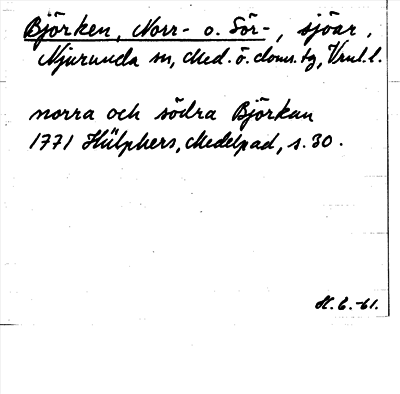 Björken, Norr- o. Sör-, sjöar,
Njurunda sn, Med. ö. doms. tg, Vrnl. l.
norra och södra Björkan
1771 Hülphers, Medelpad, s. 30.
H. E. -61.